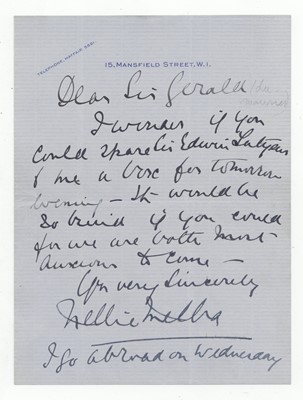 TELEPHONE, MAYFAIR
15, MANSFIELD STREET, W.1.
Dear Sir Gerald
I wonder if you
could spare Sir Edwin Lutyens
& me a box for tomorrow
evening – It would be
so kind if you could
for we are both most
anxious to come –
Yrs very sincerely
Nellie Melba
I go abroad on Wednesday